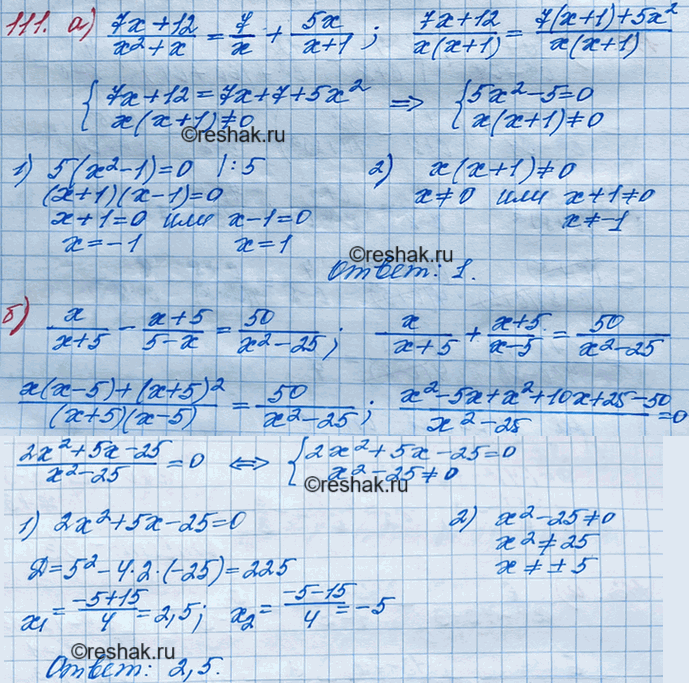 111. а) (7x+12)/(x²+x) = 7/x + 5x/(x+1) ; (7x+12)/(x(x+1)) = (7(x+1)+5x²)/(x(x+1))
{ 7x+12=7x+7+5x² ; x(x+1)≠0 ⇒ { 5x²-5=0 ; x(x+1)≠0
©reshak.ru
1) 5(x²-1)=0 |:5 2) x(x+1)≠0
(x+1)(x-1)=0 x≠0 или x+1≠0
x+1=0 или x-1=0 x≠-1
x=-1 x=1
©reshak.ru
Ответ: 1.
б) x/(x+5) - (x+5)/(5-x) = 50/(x²-25) ; x/(x+5) + (x+5)/(x-5) = 50/(x²-25)
(x(x-5)+(x+5)²)/((x+5)(x-5)) = 50/(x²-25) ; (x²-5x+x²+10x+25-50)/(x²-25) =0
(2x²+5x-25)/(x²-25) =0 ⇔ { 2x²+5x-25=0 ; x²-25≠0
©reshak.ru
1) 2x²+5x-25=0 2) x²-25≠0
x²≠25
Д=5²-4·2·(-25)=225 x≠±5
x₁ = (-5+15)/4 = 2,5; x₂ = (-5-15)/4 = -5
©reshak.ru
Ответ: 2,5.